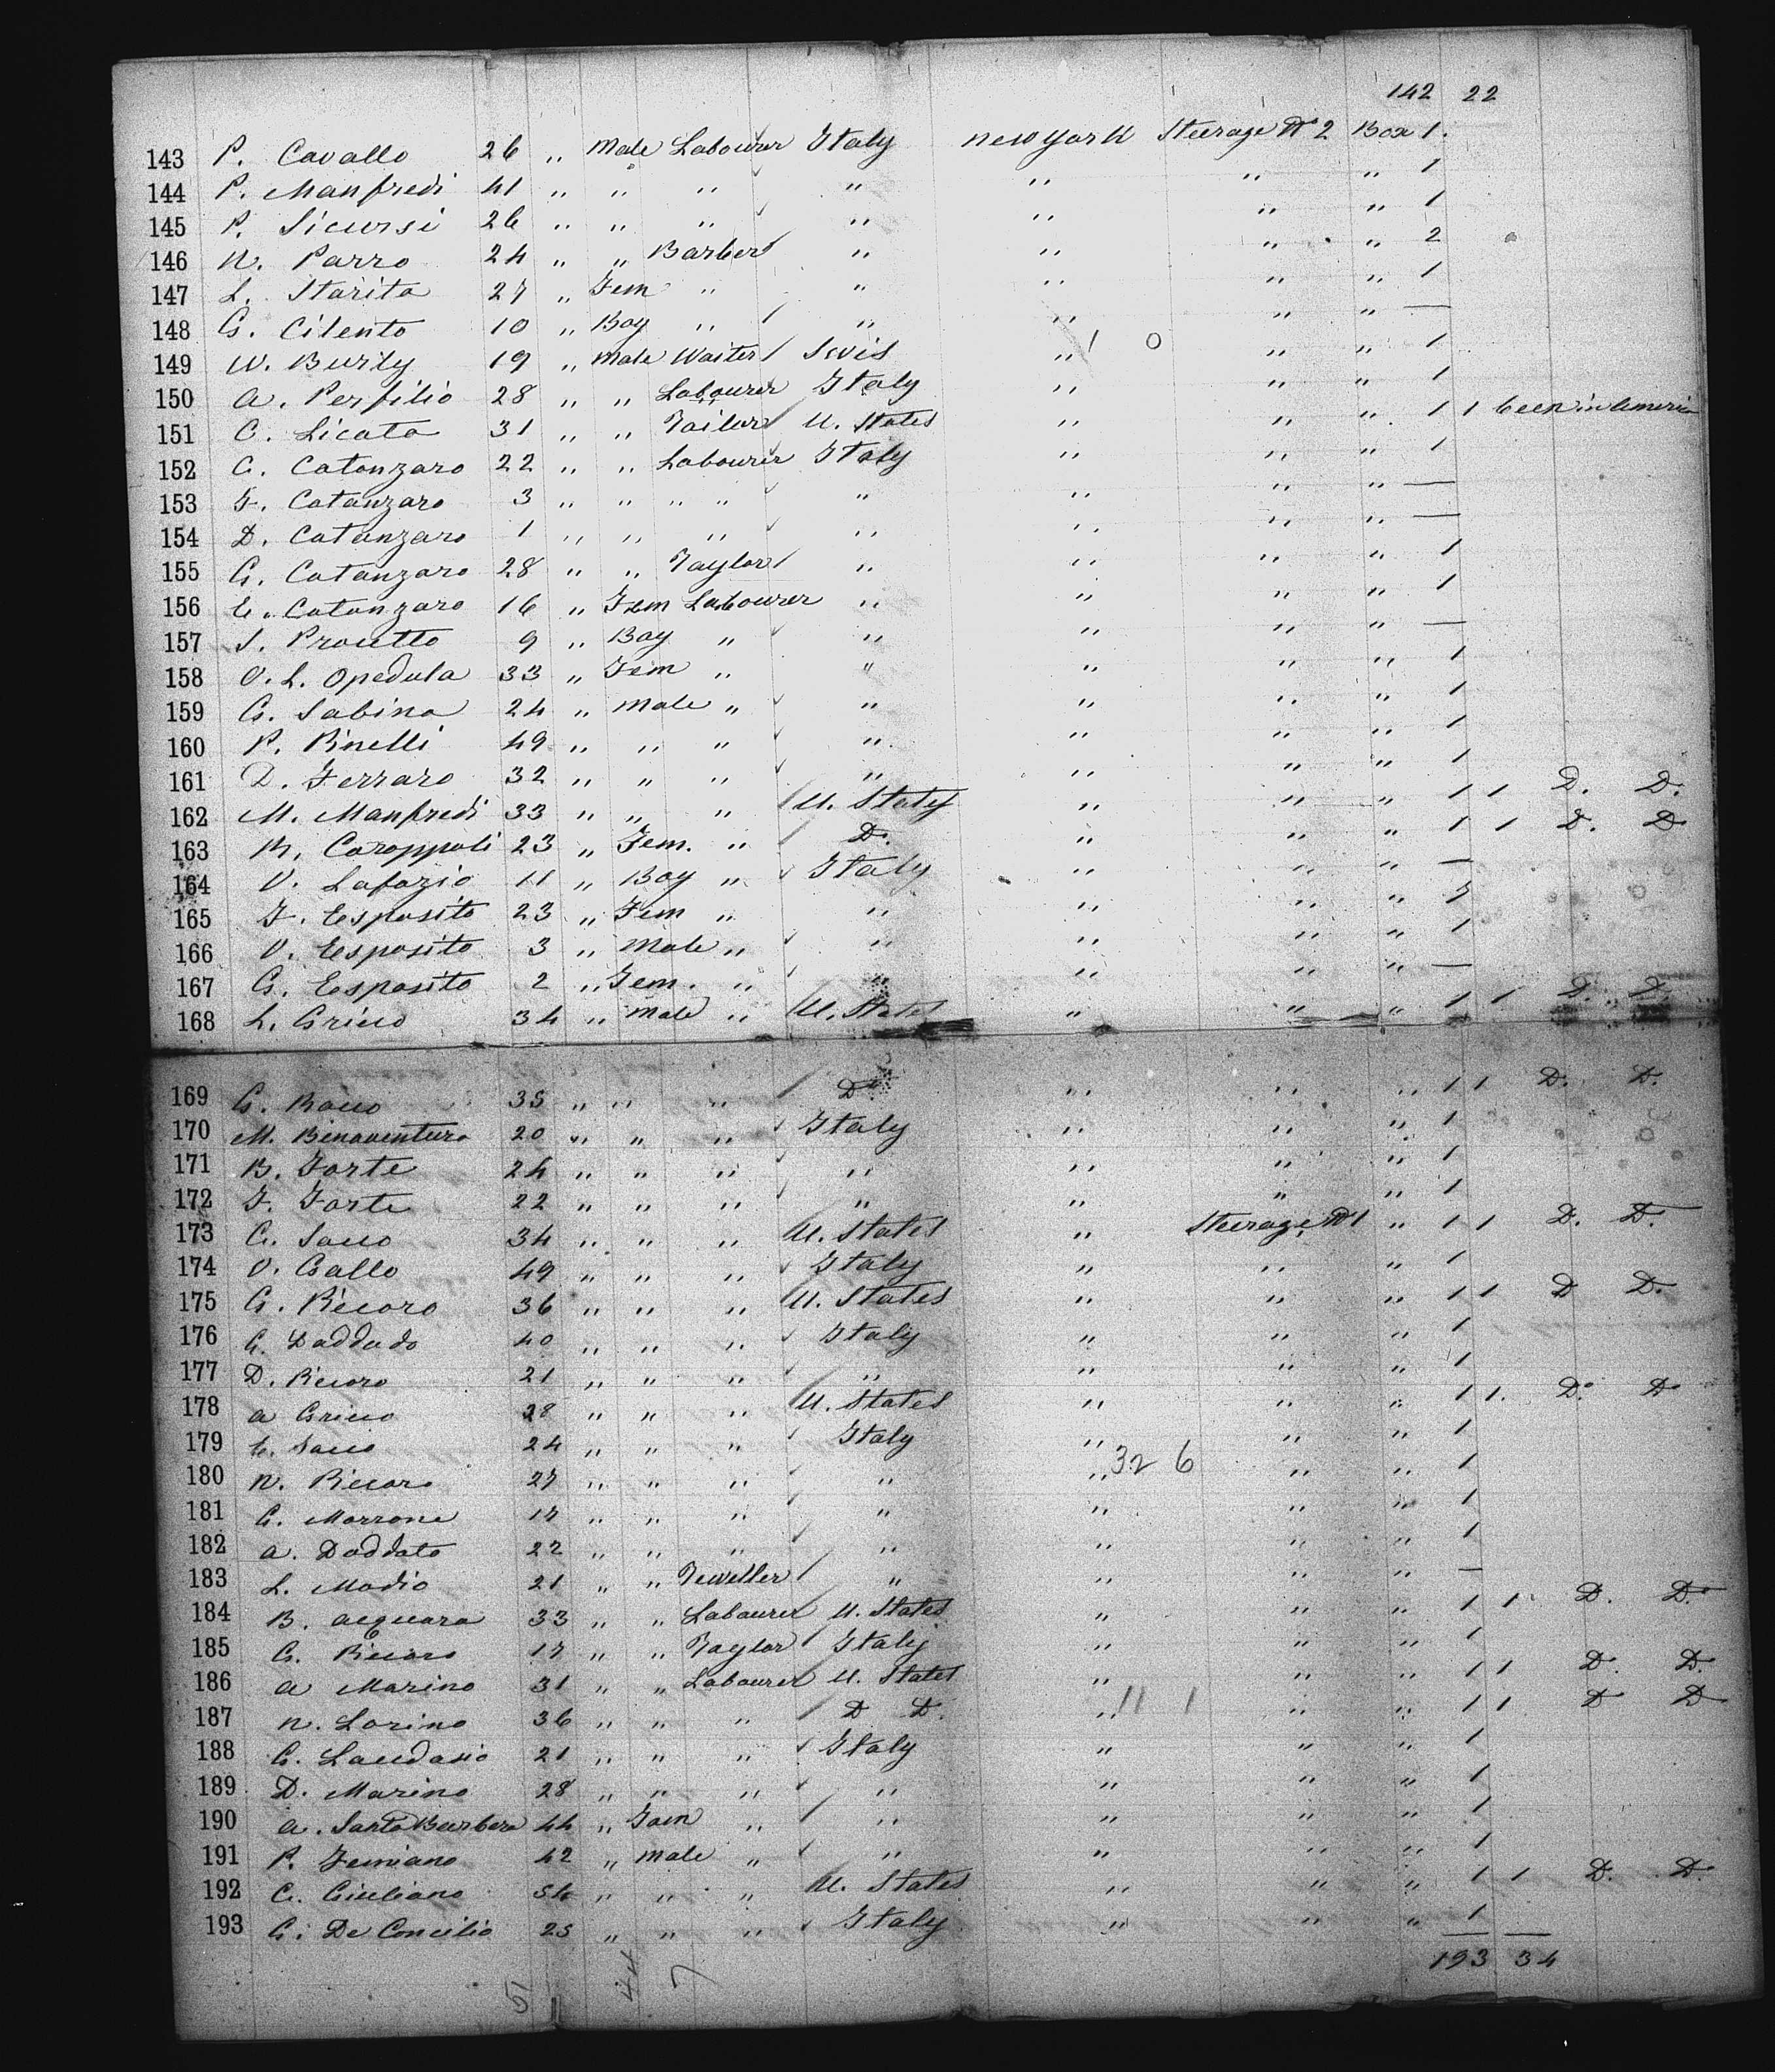 142 22
143 P. Cavallo 26 " Male Labourer Italy New York Steerage No 2 Box 1.
144 P. Manfredi 41 " " " " " " " 1
145 P. Sicursi 26 " " " " " " " 1
146 N. Parro 24 " " Barber " " " " 2
147 L. Starita 27 " Fem " " " " " 1
148 G. Cilento 10 " Boy " " " " " —
149 W. Burly 19 " Male Waiter Svis " 1 0 " " 1
150 A. Perfilio 28 " " Labourer Italy " " " 1
151 C. Licata 31 " " Tailor U. States " " " 1 1 been in America
152 C. Catanzaro 22 " " Labourer Italy " " " 1
153 F. Catanzaro 3 " " " " " " " " —
154 D. Catanzaro 1 " " " " " " " —
155 G. Catanzaro 28 " " Taylor " " " " 1
156 E. Catanzaro 16 " Fem Labourer " " " " 1
157 S. Procetto 9 " Boy " " " " " —
158 O. L. Opedula 33 " Fem " " " " " 1
159 G. Sabina 24 " Male " " " " " 1
160 P. Pinelli 49 " " " " " " " 1
161 D. Ferraro 32 " " " " " " " 1
162 M. Manfredi 33 " " " U. States " " " 1 1 D. D.
163 M. Caroppoli 23 " Fem. " D. " " " 1 1 D. D
164 V. Lafazio 11 " Boy " Italy " " " —
165 F. Esposito 23 " Fem " " " " "
166 V. Esposito 3 " Male " " " " " 1
167 G. Esposito 2 " Fem. " " " " " —
168 L. Grieco 34 " Male " U. States " " " 1 1 D. D.
169 G. Rocco 35 " " " Do " " " 1 1 D. D.
170 M. Benaventura 20 " " " Italy " " " 1
171 B. Forte 24 " " " " " " " 1
172 F. Forte 22 " " " " " " " 1
173 C. Sacco 34 " " " U. States " Steerage No 1 " 1 1 D. D.
174 V. Gallo 49 " " " Italy " " " 1
175 G. Pecoro 36 " " " U. States " " " 1 1 D D.
176 G. Daddado 40 " " " Italy " " " 1
177 D. Pecoro 21 " " " " " " " 1
178 A Grieco 28 " " " U. States " " " 1 1. Do Do
179 E. Sacco 24 " " " Italy " " " 1
180 N. Pecoro 27 " " " " " 32 6 " " 1
181 G. Morrone 17 " " " " " " " 1
182 A. Daddato 22 " " " " " " " 1
183 L. Modio 21 " " Jeweller " " " " —
184 B. Acquara 33 " " Labourer U. States " " " 1 1 D. Do
185 G. Pecoro 17 " " Taylor Italy " " " 1
186 A Marino 31 " " Labourer U. States " " " 1 1 D. D.
187 N. Lorino 36 " " " D D. " 11 1 " " 1 1 D D
188 G. Laudasio 21 " " " Italy " " " 1
189 D. Marino 28 " " " " " " " 1
190 A. Santa Barbera 44 " Fem " " " " " 1
191 P. Femiano 42 " Male " " " " " 1
192 C. Giuliano 54 " " " U. States " " " 1 1 D. D.
193 G. De Concilio 25 " " " Italy " " " 1
193 34
51 44 7